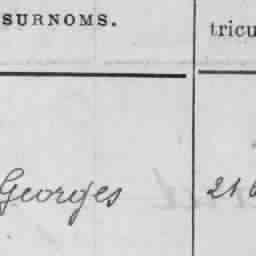 SURNOMS.
tricu
Georges
21